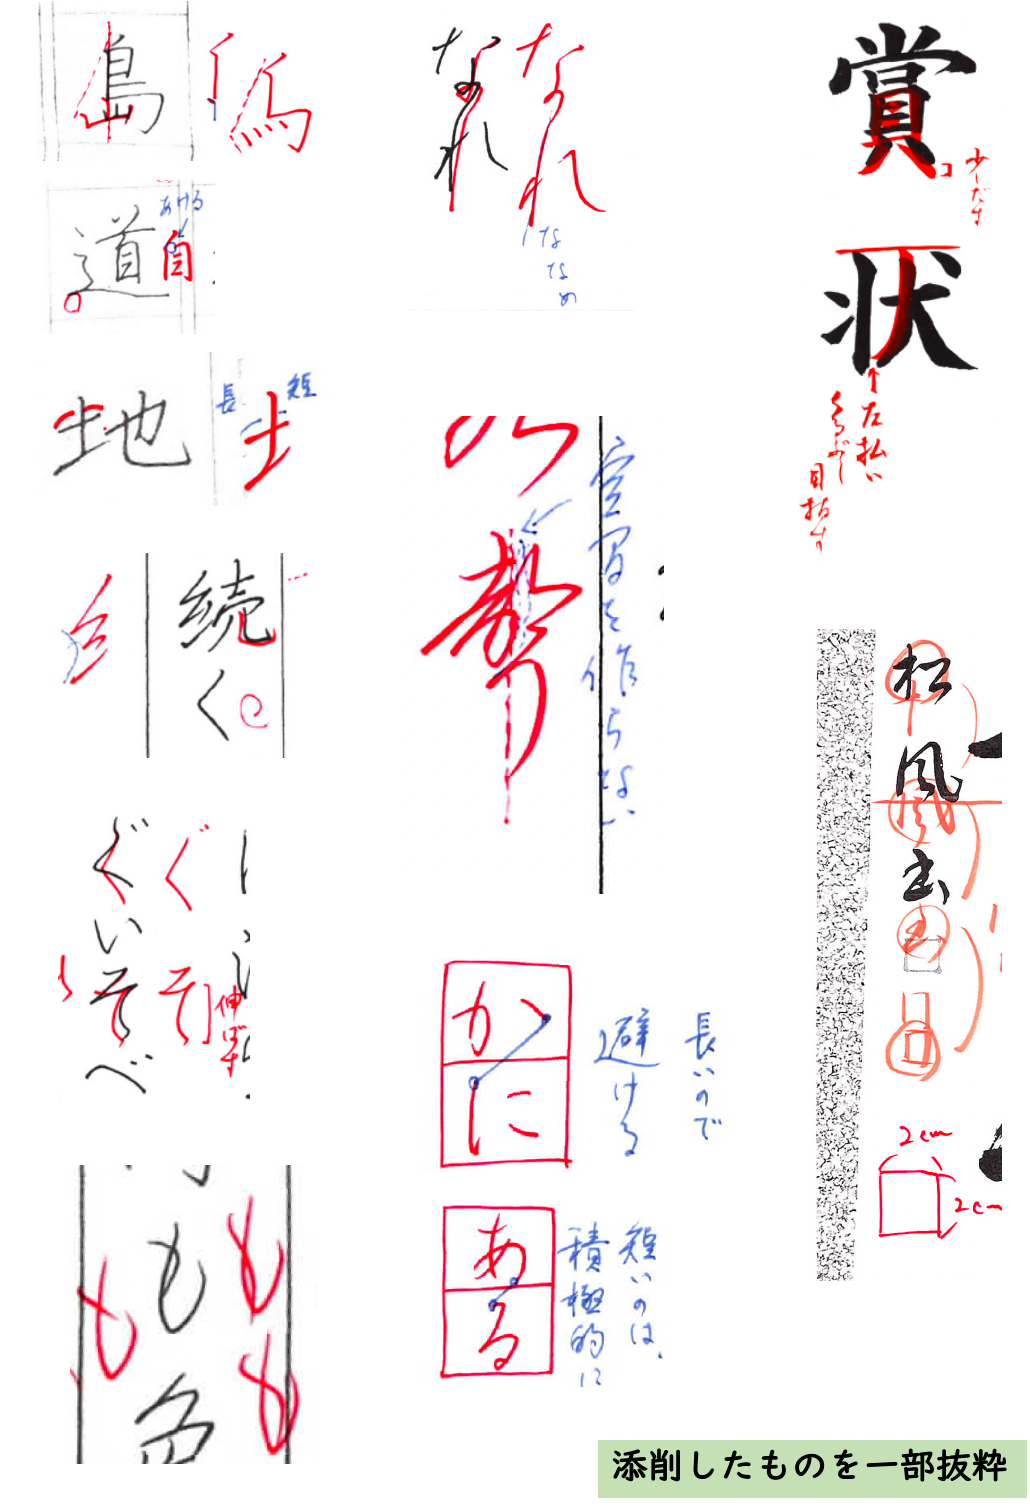 島
道
あける
自
地
長
短
土
続
く
ぐ
ぐ
い
そ
そ
伸ばす
べ
も
も
も
も
なれ
なれ
ななめ
勢
空間を作らない
かに
長いので
避ける
ある
短いのは、
積極的に
賞
少しだす
状
左払い
くるぶし
目指す
松
風
出
2cm
2cm
添削したものを一部抜粋